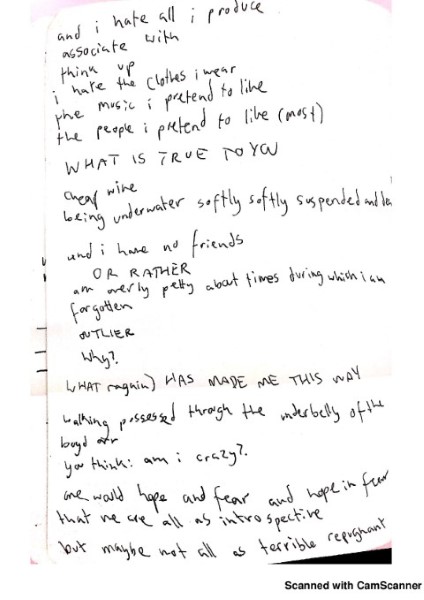 and i hate all i produce
associate with
think up
i hate the clothes i wear
the music i pretend to like
the people i pretend to like (most)
WHAT IS TRUE TO YOU
cheap wine
being underwater softly softly suspended and
and i have no friends
OR RATHER
am overly petty about times during which i am
forgotten
OUTLIER
Why?
WHAT (again) HAS MADE ME THIS WAY
walking possessed through the underbelly of the
you think: am i crazy?
one would hope and fear and hope in fear
that we are all as introspective
but maybe not all as terrible repugnant
Scanned with CamScanner